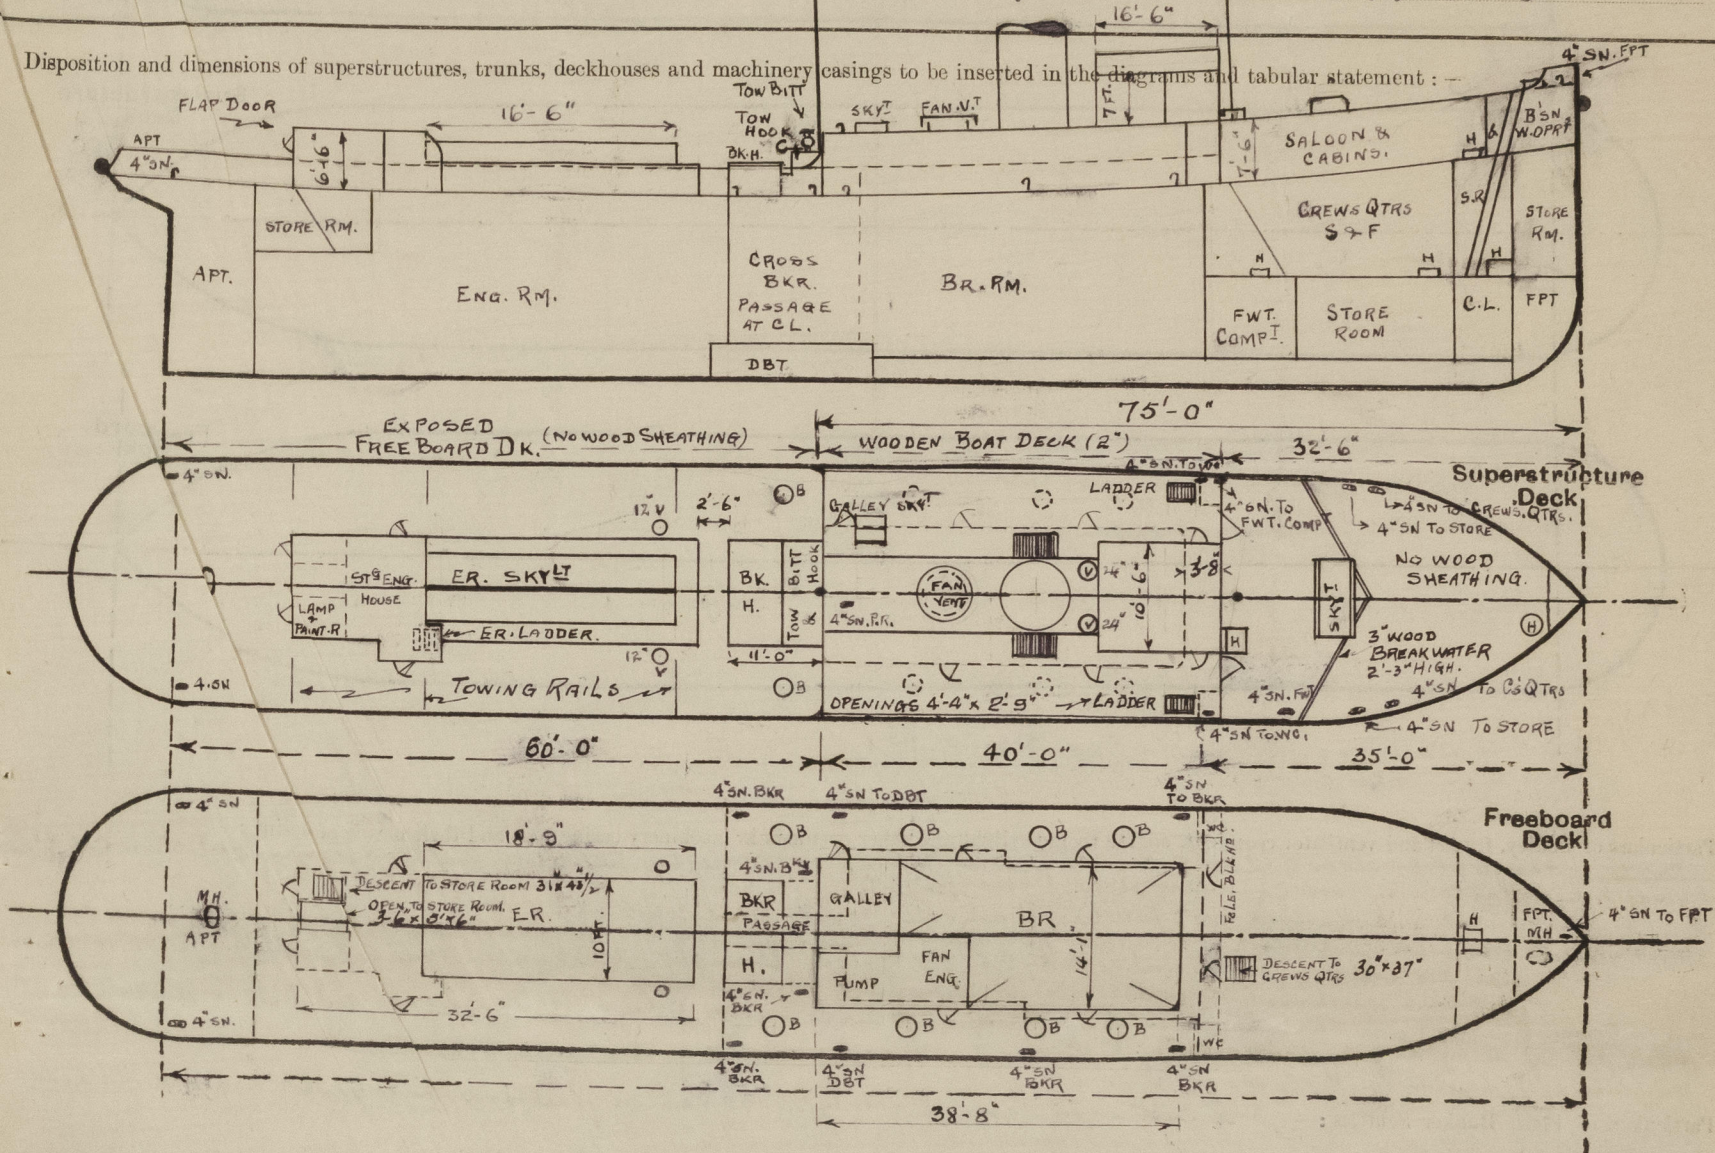 Disposition and dimensions of superstructures, trunks, deckhouses and machinery casings to be inserted in the diagrams and tabular statement : —
16'-6"
4" SN. FPT
FLAP DOOR
16'-6"
TOW BITT
TOW HOOK
BK.H.
SKYT
FAN.VT
7 FT.
APT
4" SN.
6'-6"
7'-6"
SALOON &
CABINS.
H
B'SN
W.OPRT
STORE RM.
CREWS QTRS
S & F
S.R
STORE
RM.
APT.
ENG. RM.
CROSS
BKR.
PASSAGE
AT CL.
BR. RM.
H
H
H
FWT.
COMPT.
STORE
ROOM
C.L.
FPT
DBT
75'-0"
EXPOSED
FREEBOARD DK. (NO WOOD SHEATHING)
WOODEN BOAT DECK (2")
32'-6"
Superstructure
Deck
4" SN.
4" SN. TO WC
12" V
2'-6"
B
GALLEY SKYT
LADDER
4" SN. TO
FWT. COMPT
4" SN TO CREWS. QTRS.
4" SN TO STORE
NO WOOD
SHEATHING.
STG ENG.
HOUSE
ER. SKYLT
BK.
H.
TOW BITT
& HOOK
FAN
VENT
V
24"
10'-6"
3'-8"
SKYT
LAMP
&
PAINT.R
ER. LADDER.
4" SN. P.R.
V
24"
H
H
3" WOOD
BREAKWATER
2'-3" HIGH.
12" V
11'-0"
4" SN
TOWING RAILS
B
OPENINGS 4'-4" x 2'-9"
LADDER
4" SN. FWT
4" SN TO C'S QTRS
4" SN TO WC.
4" SN TO STORE
60'-0"
40'-0"
35'-0"
4" SN. BKR
4" SN TO DBT
4" SN
TO BKR
Freeboard
Deck
4" SN
18'-9"
B
B
B
B
WC
4" SN. BKR
DESCENT TO STORE ROOM
OPEN. TO STORE ROOM.
MH.
APT
E.R.
10 FT.
BKR
PASSAGE
H.
GALLEY
PUMP
FAN
ENG.
BR
14'-1"
FCLE. BLKHD.
H
FPT.
MH
4" SN TO FPT
DESCENT TO
CREWS QTRS
30" x 37"
4" SN.
BKR
32'-6"
4" SN.
B
B
B
B
WC
4" SN.
BKR
4" SN
DBT
4" SN
BKR
4" SN
BKR
38'-8"